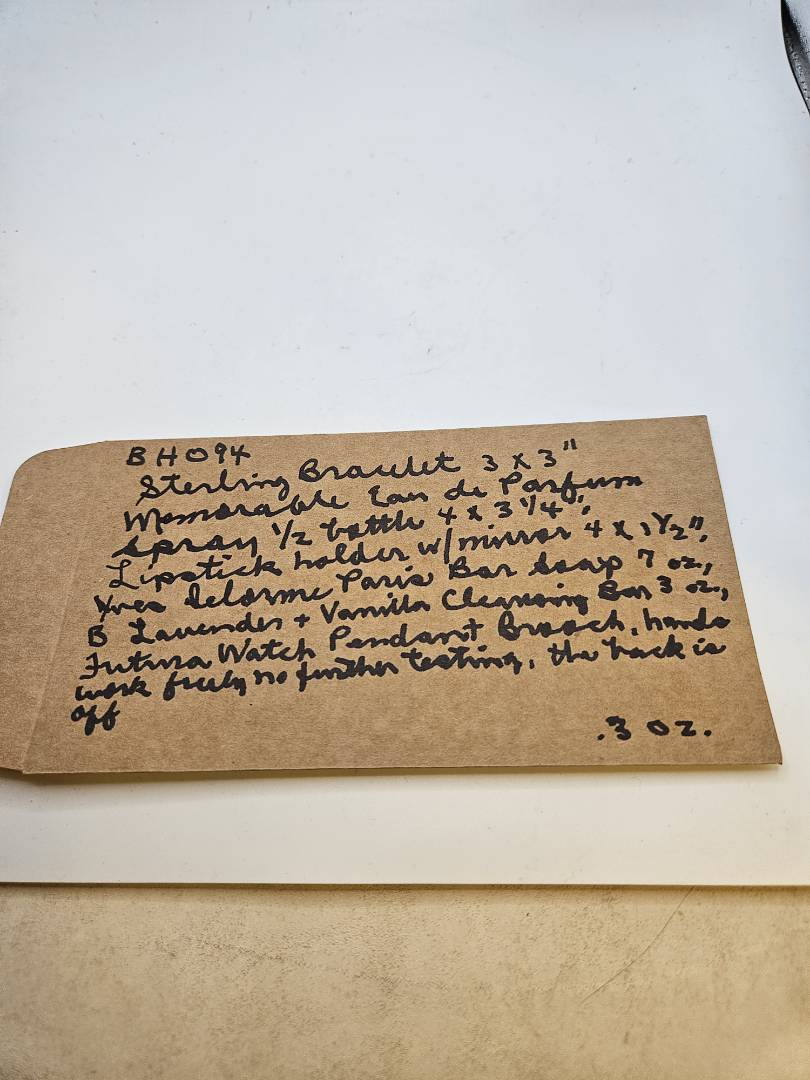 BH094
Sterling Bracelet 3 x 3"
Memorable Eau de Parfum
spray 1/2 bottle 4 x 3 1/4",
Lipstick holder w/mirror 4 x 1 1/2",
Yves Delorme Paris Bar Soap 7 oz.,
B Lavender + Vanilla Cleansing Bar 3 oz.,
Futura Watch Pendant Brooch, hands
work freely no further testing, the back is
off
.3 oz.